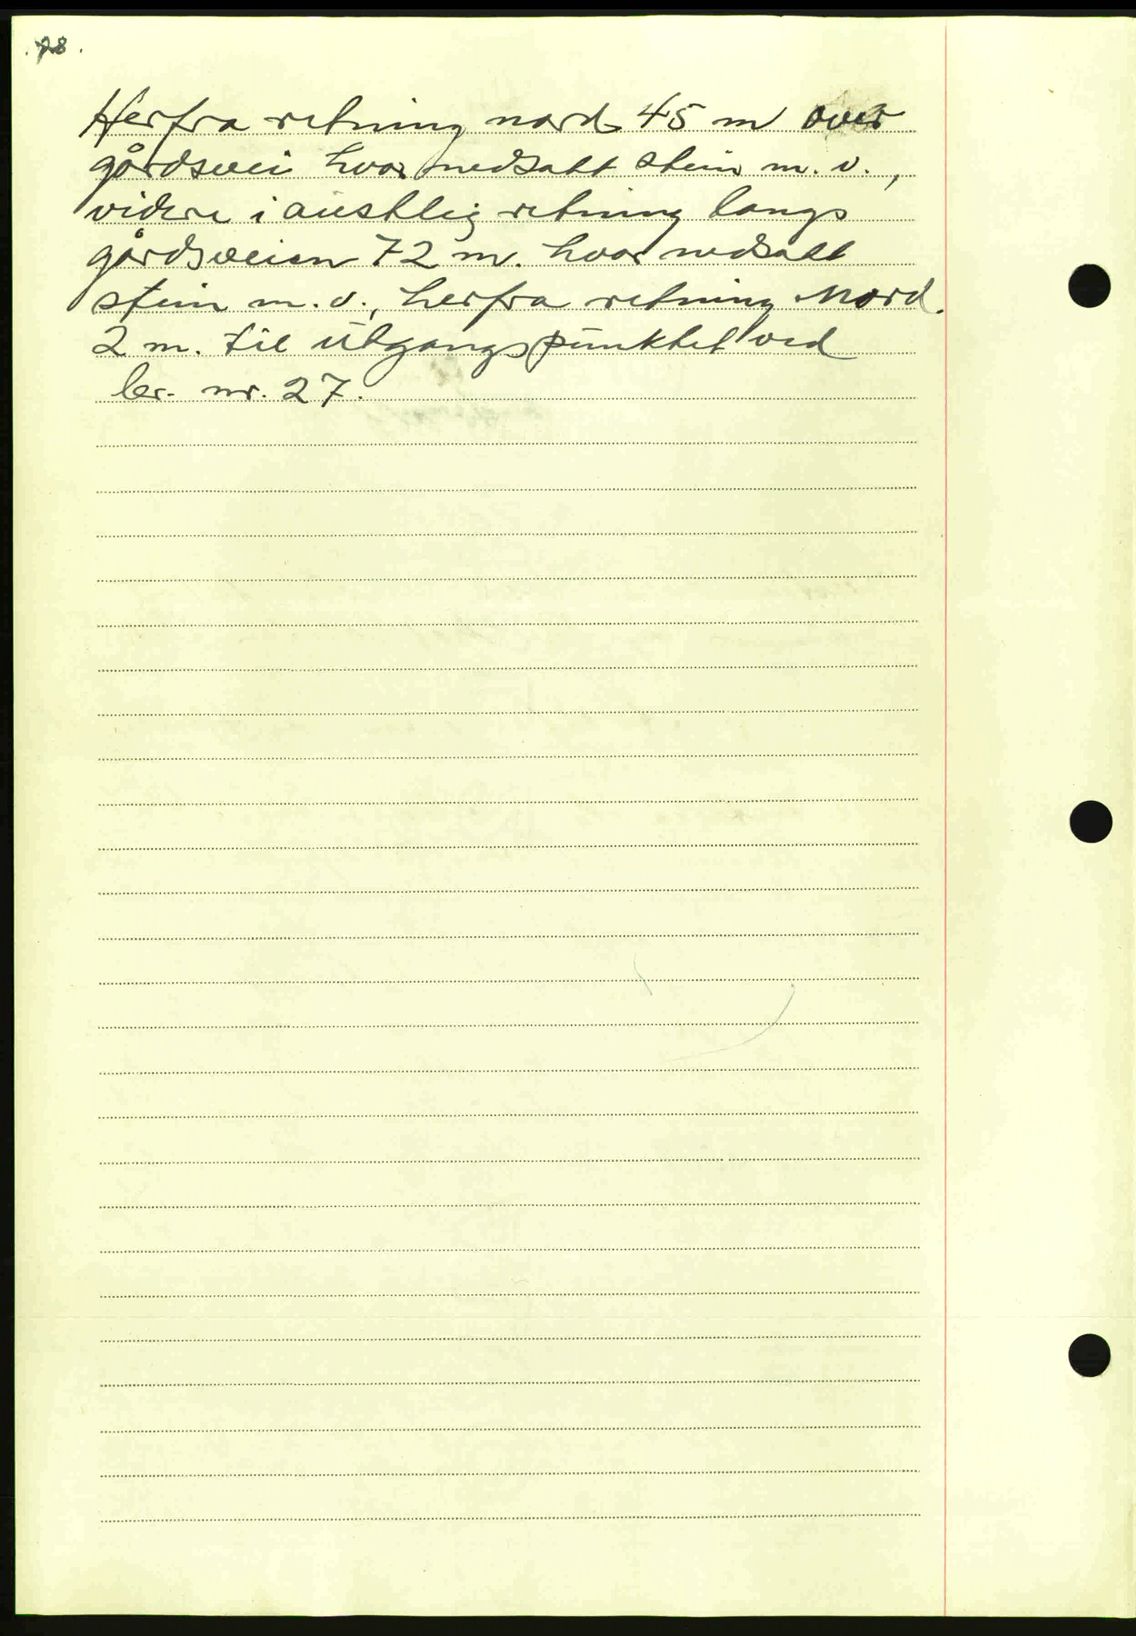 78.
Herfra retning nord 45 m over
gårdsvei hvor nedsatt stein m. v.,
videre i austlig retning langs
gårdsveien 72 m. hvor nedsatt
stein m. v., herfra retning Nord.
2 m. til utgangspunktet ved
br. nr. 27.